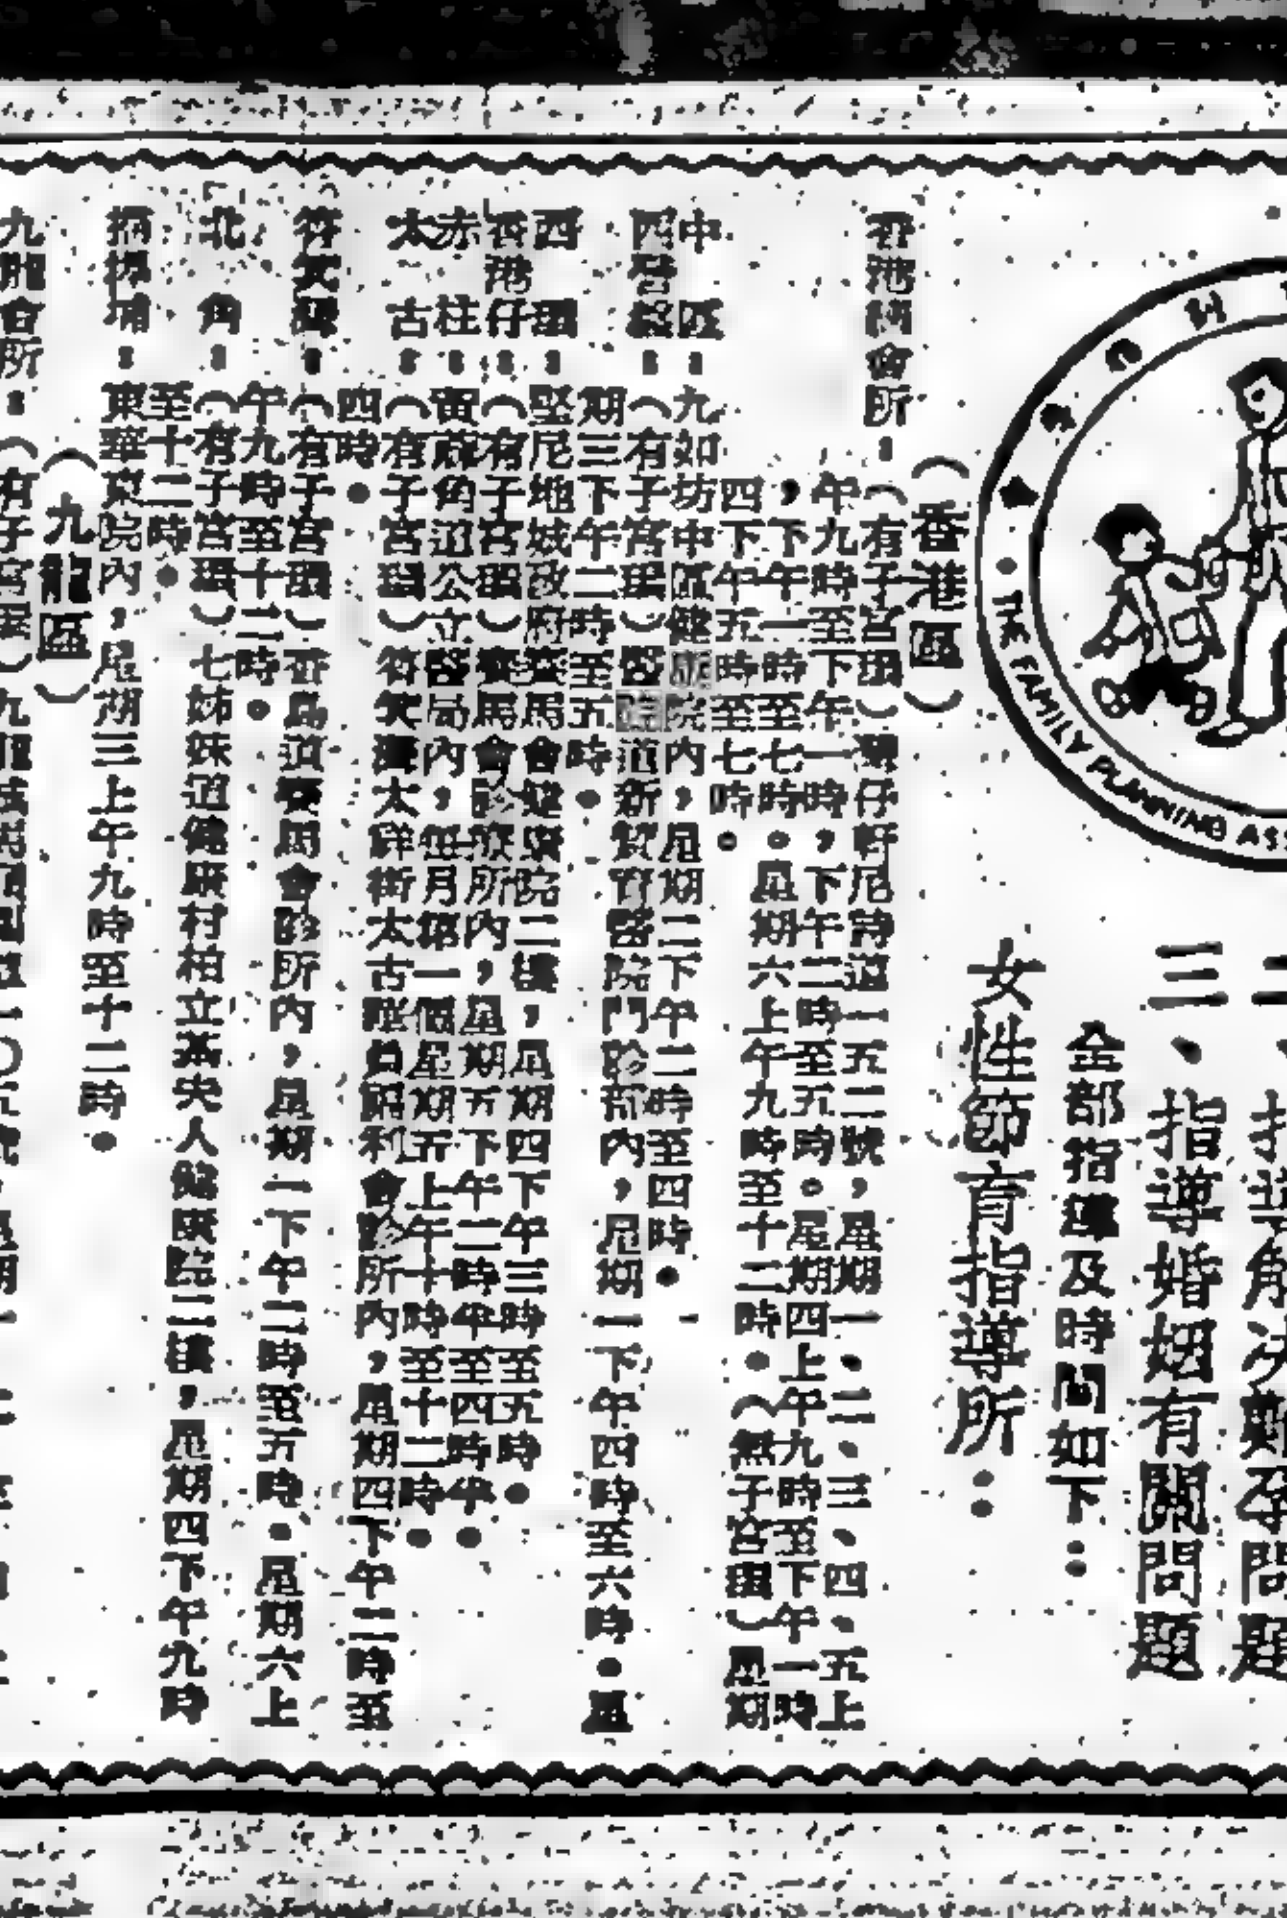 THE FAMILY PLANNING ASS
三、指導婚姻有關問題
全部指導及時間如下：
女性節育指導所：
（香港區）
香港總會所：（有子宮環）灣仔軒尼詩道一五二號，星期一、二、三、四、五上
午九時至下午一時，下午二時至五時。星期四上午九時至下午一時
，下午二時至七時。星期六上午九時至十二時。（無子宮環）星期
四下午五時至七時。
中區：九如坊中區健康院內，星期二下午二時至四時。
西營盤：（有子宮環）醫院道新贊育醫院門診部內，星期一下午四時至六時。星
期三下午二時至五時。
西環：堅尼地城政府賽馬會健康院二樓，星期四下午三時至五時。
香港仔：（有子宮環）賽馬會診療所內，星期五下午二時半至四時半。
赤柱：黃麻角道公立醫局內，每月第一個星期五上午十時至十二時。
太古：（有子宮環）筲箕灣太祥街太古船員福利會診所內，星期四下午二時至
四時。
筲箕灣：（有子宮環）西灣道賽馬會診所內，星期一下午二時至五時。星期六上
午九時至十二時。
北角：（有子宮環）七姊妹道健康村柏立基夫人健康院二樓，星期四下午九時
至十二時。
掃桿埔：東華東院內，星期三上午九時至十二時。
（九龍區）
九龍會所：（有子宮環）九龍